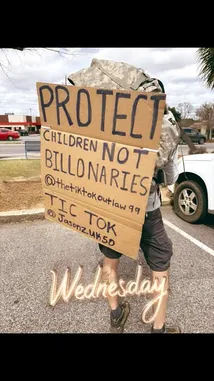 PROTECT
CHILDREN NOT
BILLONARIES
@thetiktokoutlaw99
TIC TOK
@JasonzUKSD
Wednesday